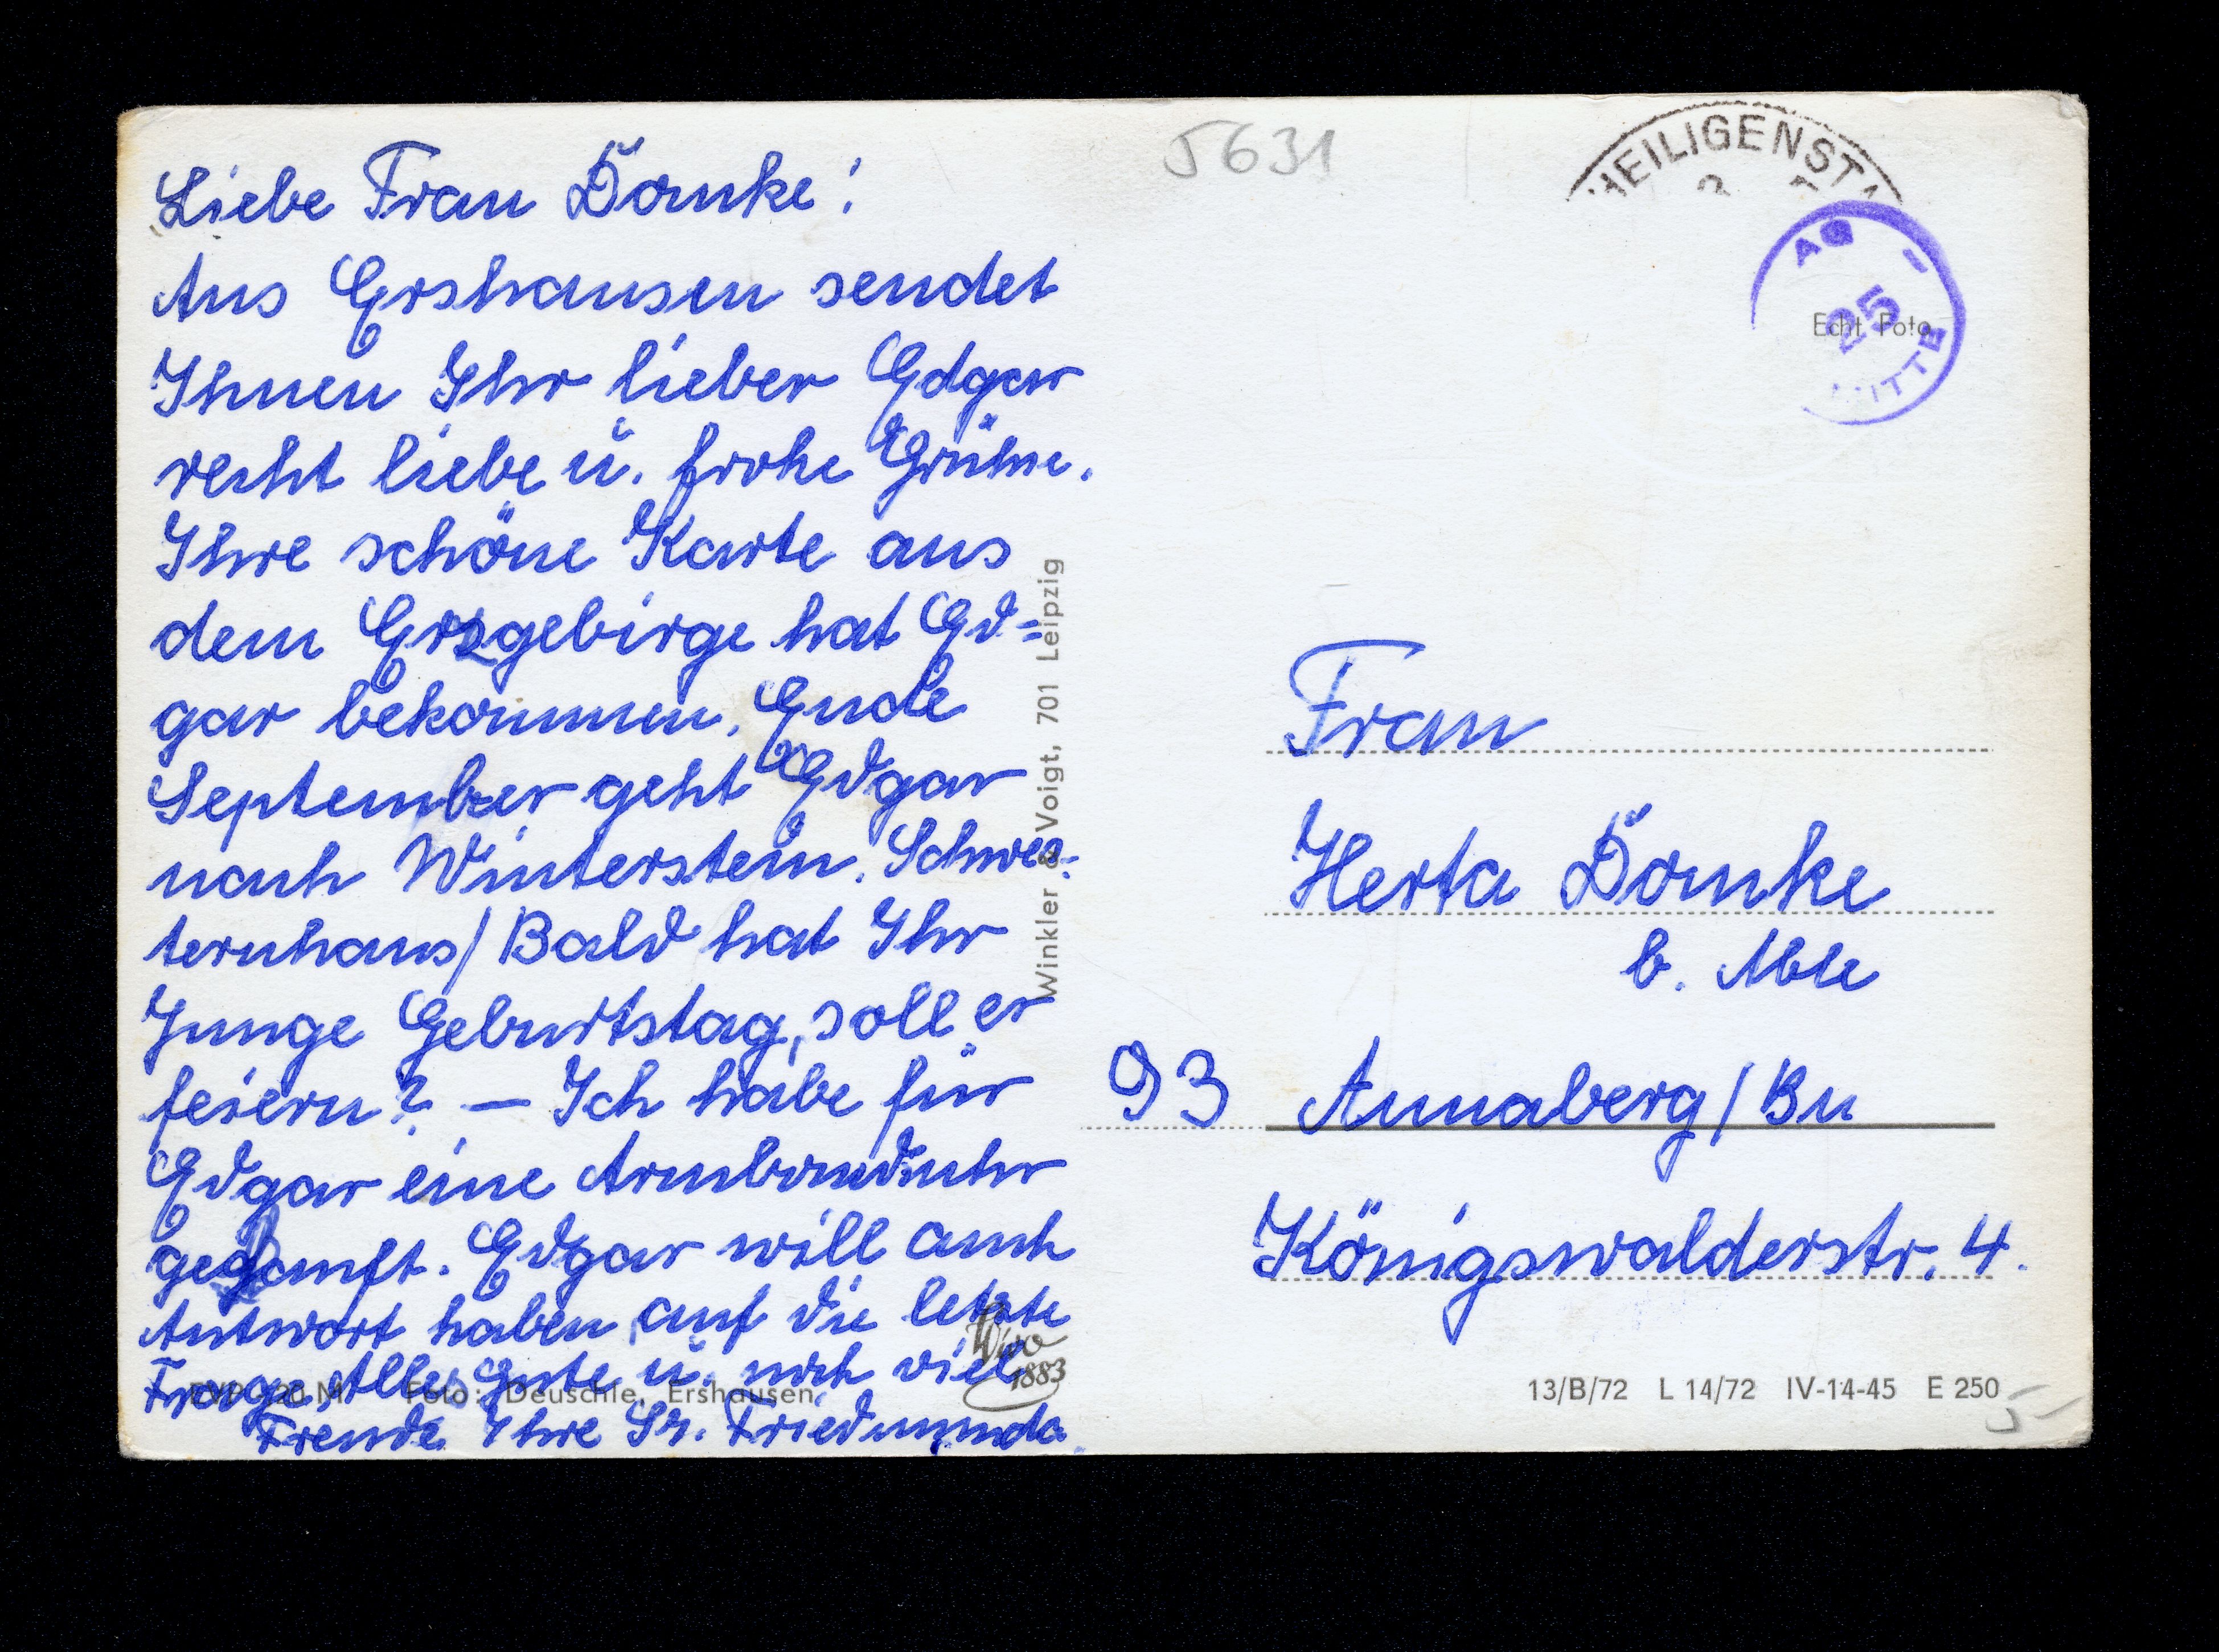 Liebe Frau Dömke!
Aus Ershausen sendet
Ihnen Ihr lieber Edgar
recht liebe u. frohe Grüße.
Ihre schöne Karte aus
dem Erzgebirge hat Ed=
gar bekommen. Ende
September geht Edgar
nach Winterstein. Schwes=
ternhaus/ Bald hat Ihr
Junge Geburtstag, soll er
feiern? — Ich habe für
Edgar eine Armbanduhr
gekauft. Edgar will auch
Antwort haben, auf die letzte
Frage. Alles Gute u. noch viel
Freude Ihre Sr. Friedmunda
Foto: Deuschle, Ershausen
Wivo
1883
Winkler & Voigt, 701 Leipzig
5631
HEILIGENST
25
MITTE
Echt Foto
Frau
Herta Dömke
b.
93 Annaberg/Bu
Königswalderstr. 4.
13/B/72 L 14/72 IV-14-45 E 250
5-